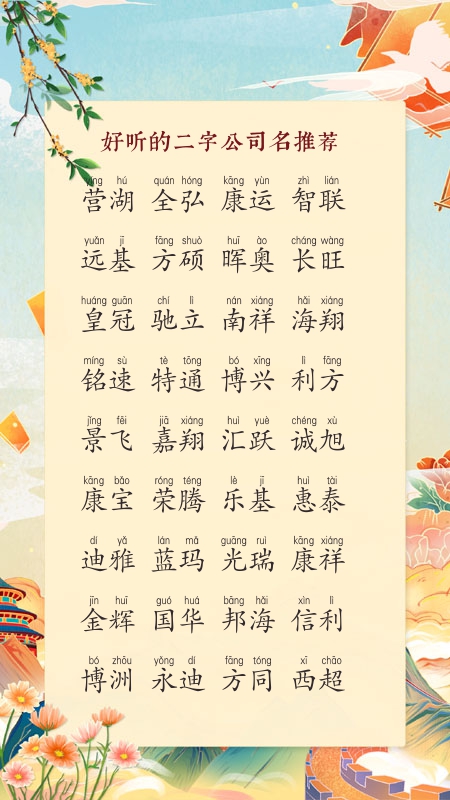 好听的二字公司名推荐
yíng hú quán hóng kāng yùn zhì lián
营湖 全弘 康运 智联
yuǎn jī fāng shuò huī ào cháng wàng
远基 方硕 晖奥 长旺
huáng guān chí lì nán xiáng hǎi xiáng
皇冠 驰立 南祥 海翔
míng sù tè tōng bó xīng lì fāng
铭速 特通 博兴 利方
jǐng fēi jiā xiáng huì yuè chéng xù
景飞 嘉翔 汇跃 诚旭
kāng bǎo róng téng lè jī huì tài
康宝 荣腾 乐基 惠泰
dí yǎ lán mǎ guāng ruì kāng xiáng
迪雅 蓝玛 光瑞 康祥
jīn huī guó huá bāng hǎi xìn lì
金辉 国华 邦海 信利
bó zhōu yǒng dí fāng tóng xī chāo
博洲 永迪 方同 西超